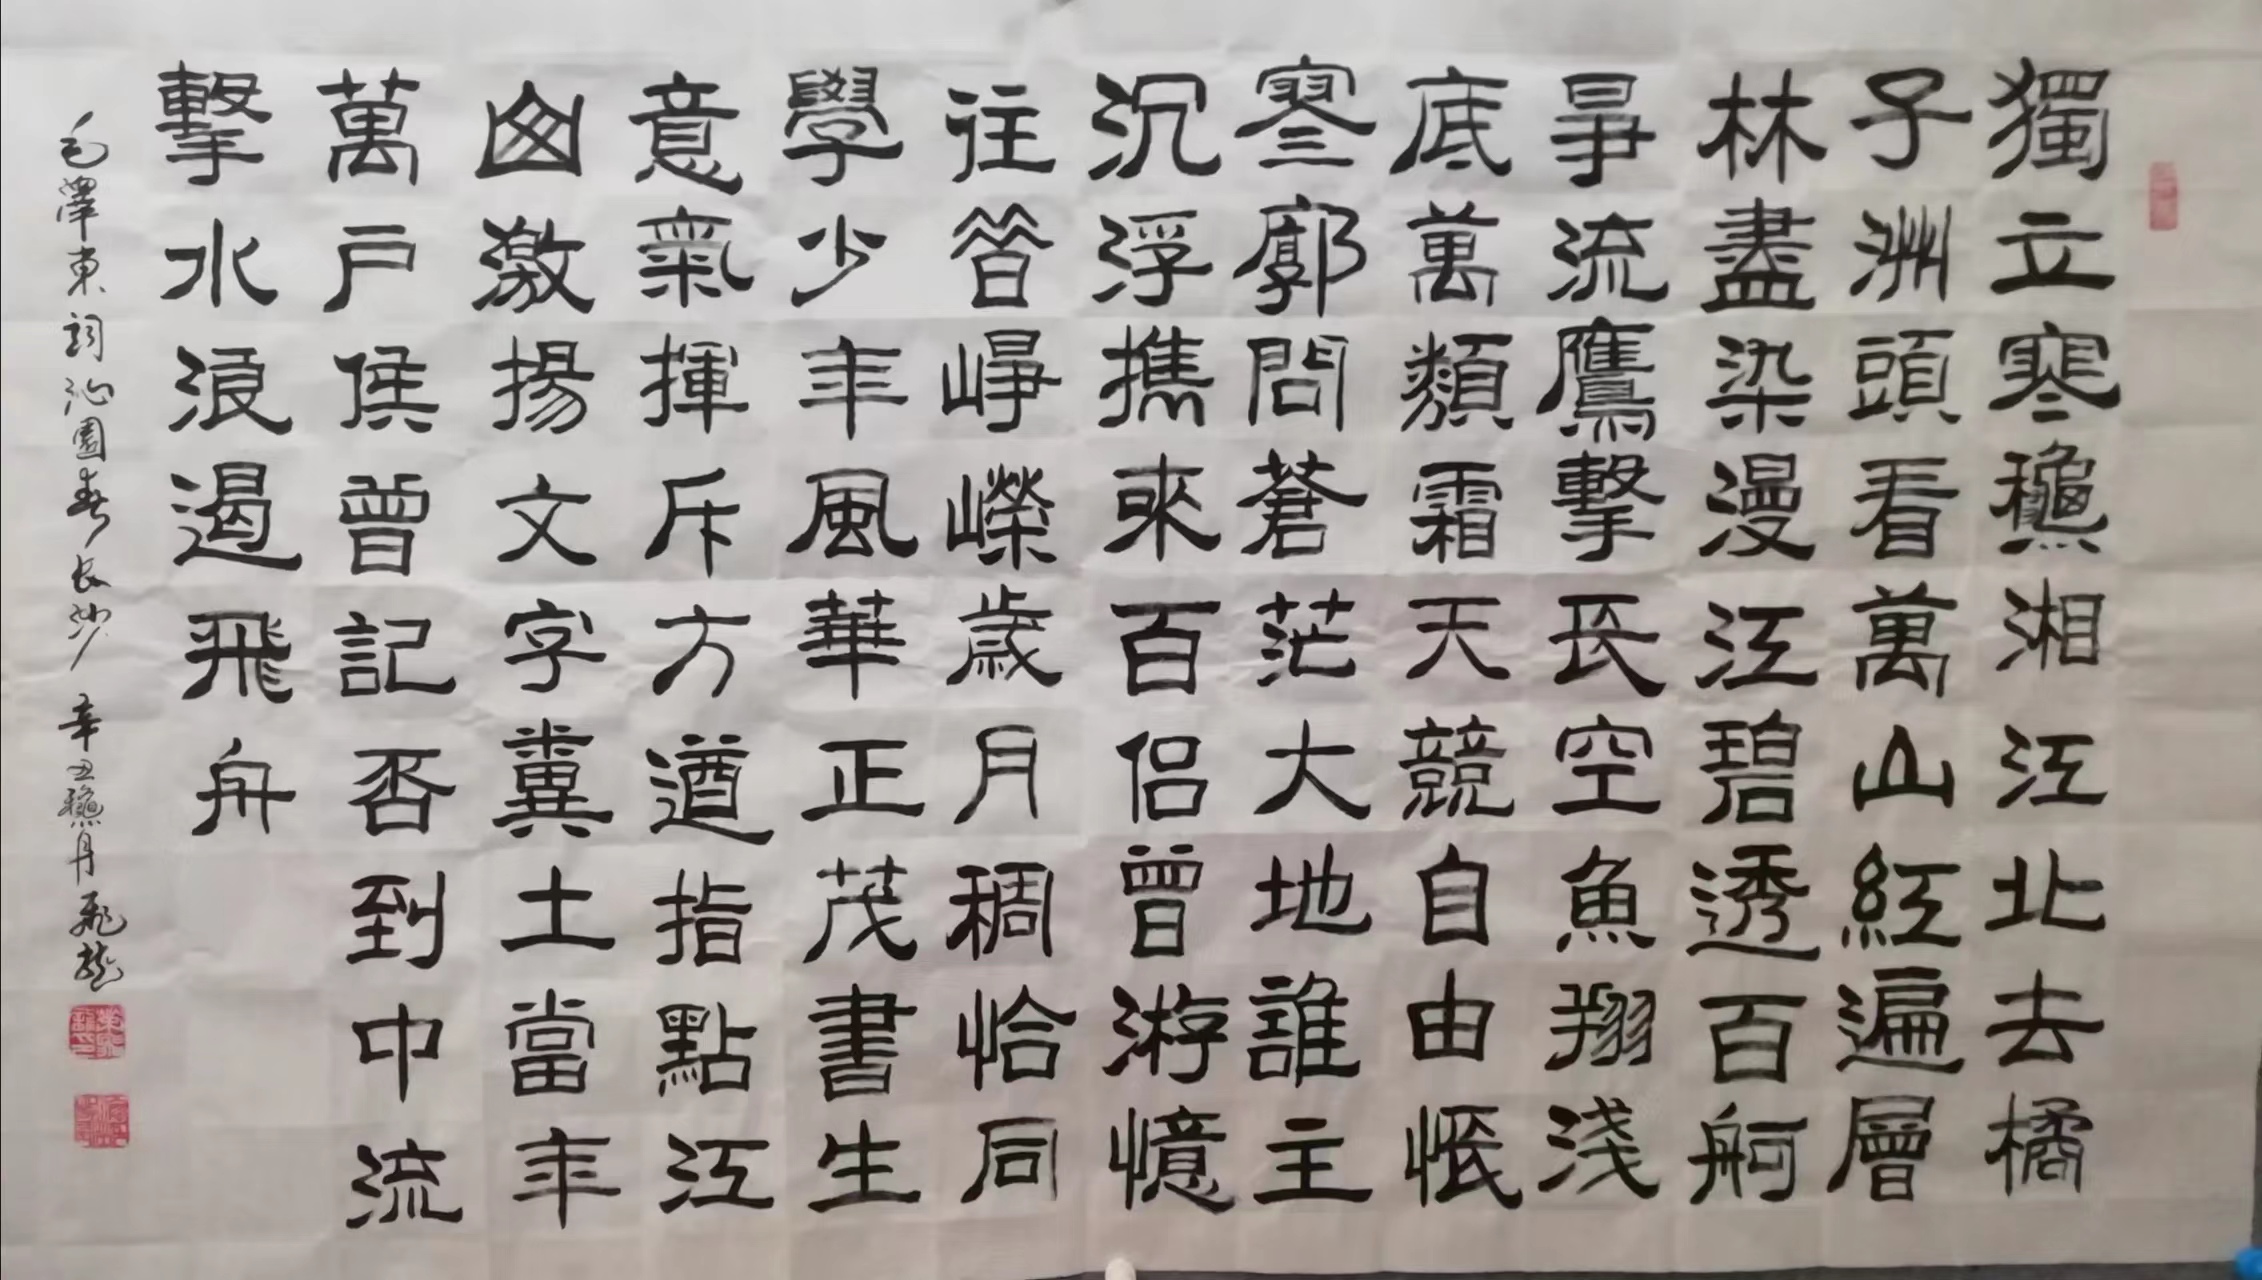 獨立寒龝湘江北去橘
子洲頭看萬山紅遍層
林盡染漫江碧透百舸
爭流鷹擊長空魚翔淺
底萬類霜天競自由悵
寥廓問蒼茫大地誰主
沉浮攜來百侶曾游憶
往昔崢嶸歲月稠恰同
學少年風華正茂書生
意氣揮斥方遒指點江
山激揚文字糞土當年
萬戶侯曾記否到中流
擊水浪遏飛舟
毛澤東詞沁園春長沙 辛丑龝月飛龍